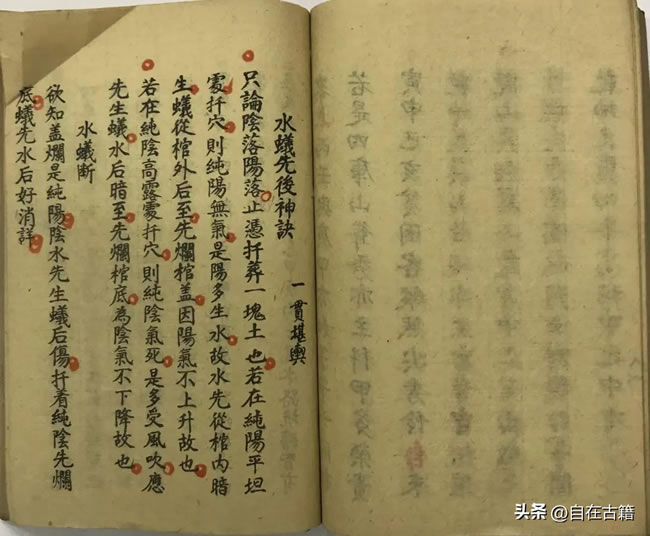 水蟻先後神訣
一貫堪輿
只論陰落陽落止憑扦葬一塊土也若在純陽平坦
處扦穴則純陽無氣是陽多生水故水先從棺內暗
生蟻從棺外后至先爛棺盖因陽氣不上升故也
若在純陰高露處扦穴則純陰氣死是多受風吹應
先生蟻水后暗至先爛棺底為陰氣不下降故也
水蟻断
欲知盖爛是純陽陰水先生蟻后傷扦着純陰先爛
底蟻先水后好消詳
头条 @自在古籍